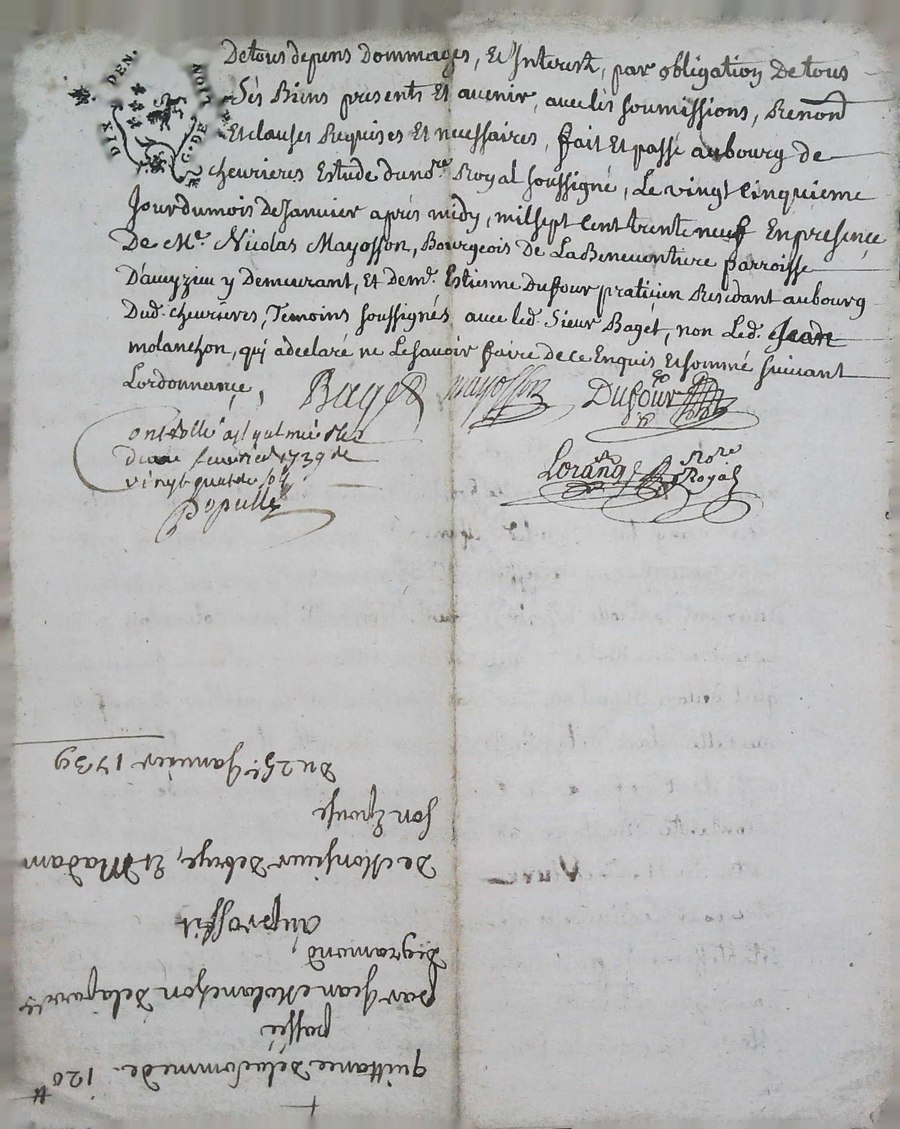 DIX DEN.
G. DE LION
De tous depens Dommages, Et Interest, par obligation De tous
Ses Biens presents Et avenir, avec les soumissions, Renon
Et clauses Requises Et necessaires, fait Et passé au bourg de
chevrieres Estude du no.re Royal soussigné, Le vingt cinquieme
Jour du mois De Janvier aprés midy, mil sept Cent trente neuf En presence
De M.e Nicolas Mayosson, Bourgeois De La Beneventure parroisse
D'aveyzieu y Demeurant, Et de m.e Estienne Dufour praticien Residant au bourg
Dud. chevrieres, Temoins soussignés avec led. Sieur Baget, non Led. Jean
molanchon, qui a declaré ne Le savoir faire de ce Enquis Et sommé suivant
Lordonnance,
Baget mayosson Dufour
Controllé a st galmier le
fevrier 1739 de
vingt quatre sols
Populle
Lorang Nore
Royal
quittance de la somme de 120
passée
par Jean Molanchon
Degramond,
au proffit
De Monsieur Et Madam
son Epouse
Du 25e Janvier 1739